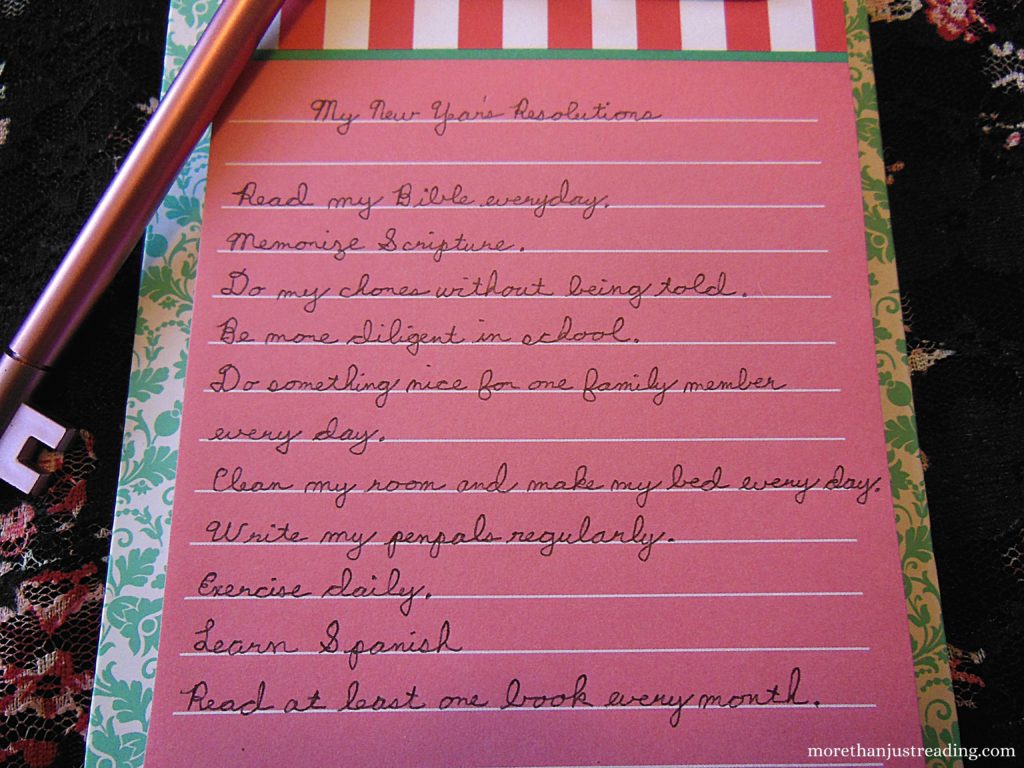 My New Year's Resolutions
Read my Bible everyday.
Memorize Scripture.
Do my chores without being told.
Be more diligent in school.
Do something nice for one family member
every day.
Clean my room and make my bed every day.
Write my penpals regularly.
Exercise daily.
Learn Spanish
Read at least one book every month.
morethanjustreading.com